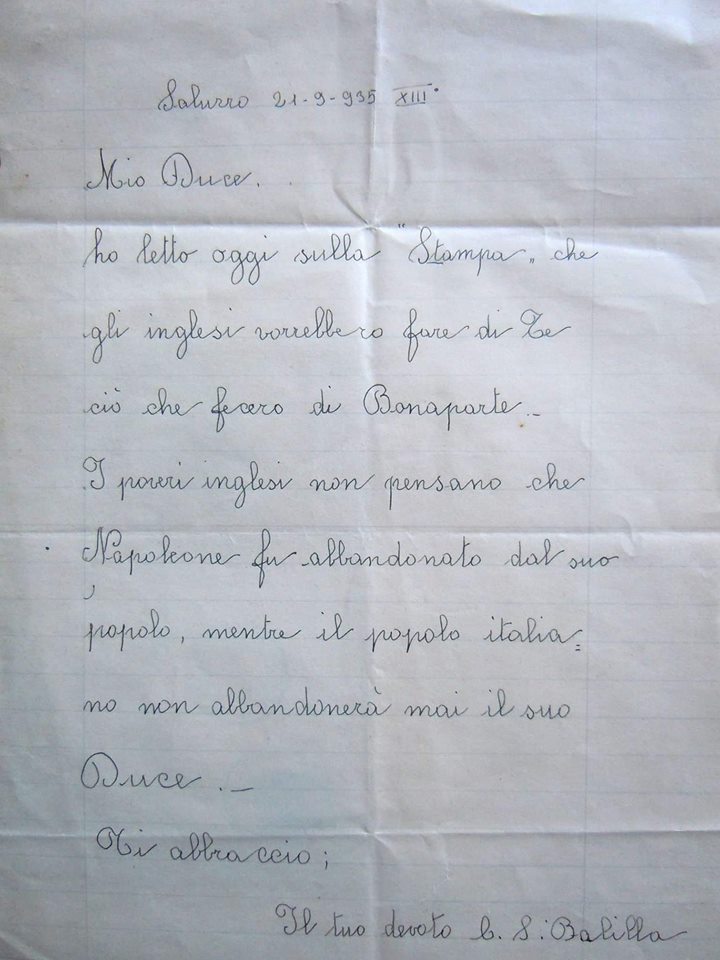 Saluzzo 21-9-935 XIII°
Mio Duce.
ho letto oggi sulla "Stampa„ che
gli inglesi vorrebbero fare di Te
ciò che fecero di Bonaparte._
I poveri inglesi non pensano che
Napoleone fu abbandonato dal suo
popolo, mentre il popolo italia=
no non abbandonerà mai il suo
Duce._
Ti abbraccio;
Il tuo devoto C. S. Balilla